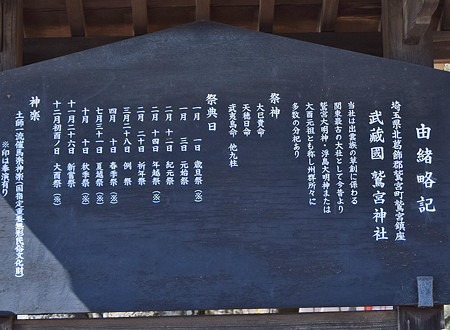 由緒略記
埼玉県北葛飾郡鷲宮町鷲宮鎮座
武蔵國 鷲宮神社
当社は出雲族の草創に係わる
関東最古の大社として今昔より
鷲宮大明神・浮島大明神または
大酉元祖とも称し州羣所々に
多数の分祀あり
祭神
大己貴命
天穂日命
武夷鳥命 他九柱
祭典日
一月 一日 歳旦祭(※)
一月 三日 元始祭
二月 十一日 紀元祭
二月 十四日 年越祭(※)
二月 二十日 祈年祭
三月二十八日 例祭
四月 十日 春季祭(※)
七月三十一日 夏越祭(※)
十月 十日 秋季祭(※)
十一月二十六日 新嘗祭
十二月初酉ノ日 大酉祭(※)
神楽
土師一流催馬楽神楽(国指定重要無形民俗文化財)
※印は奉演有り